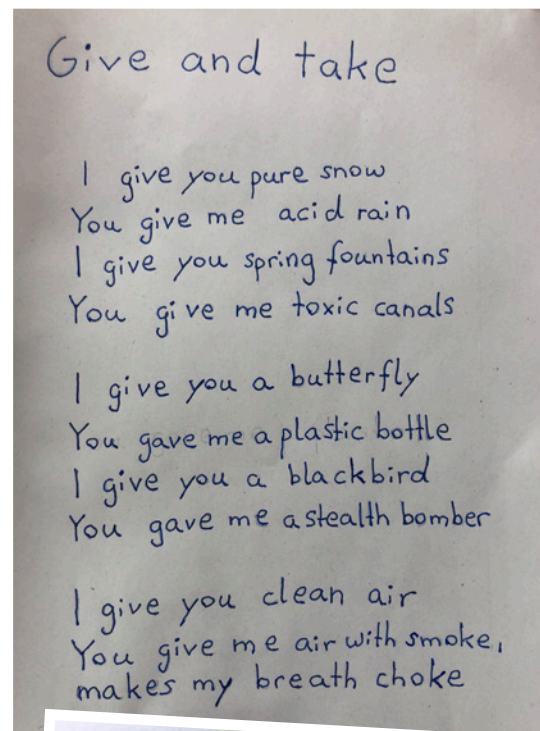 Give and take
I give you pure snow
You give me acid rain
I give you spring fountains
You give me toxic canals
I give you a butterfly
You gave me a plastic bottle
I give you a blackbird
You gave me a stealth bomber
I give you clean air
You give me air with smoke,
makes my breath choke